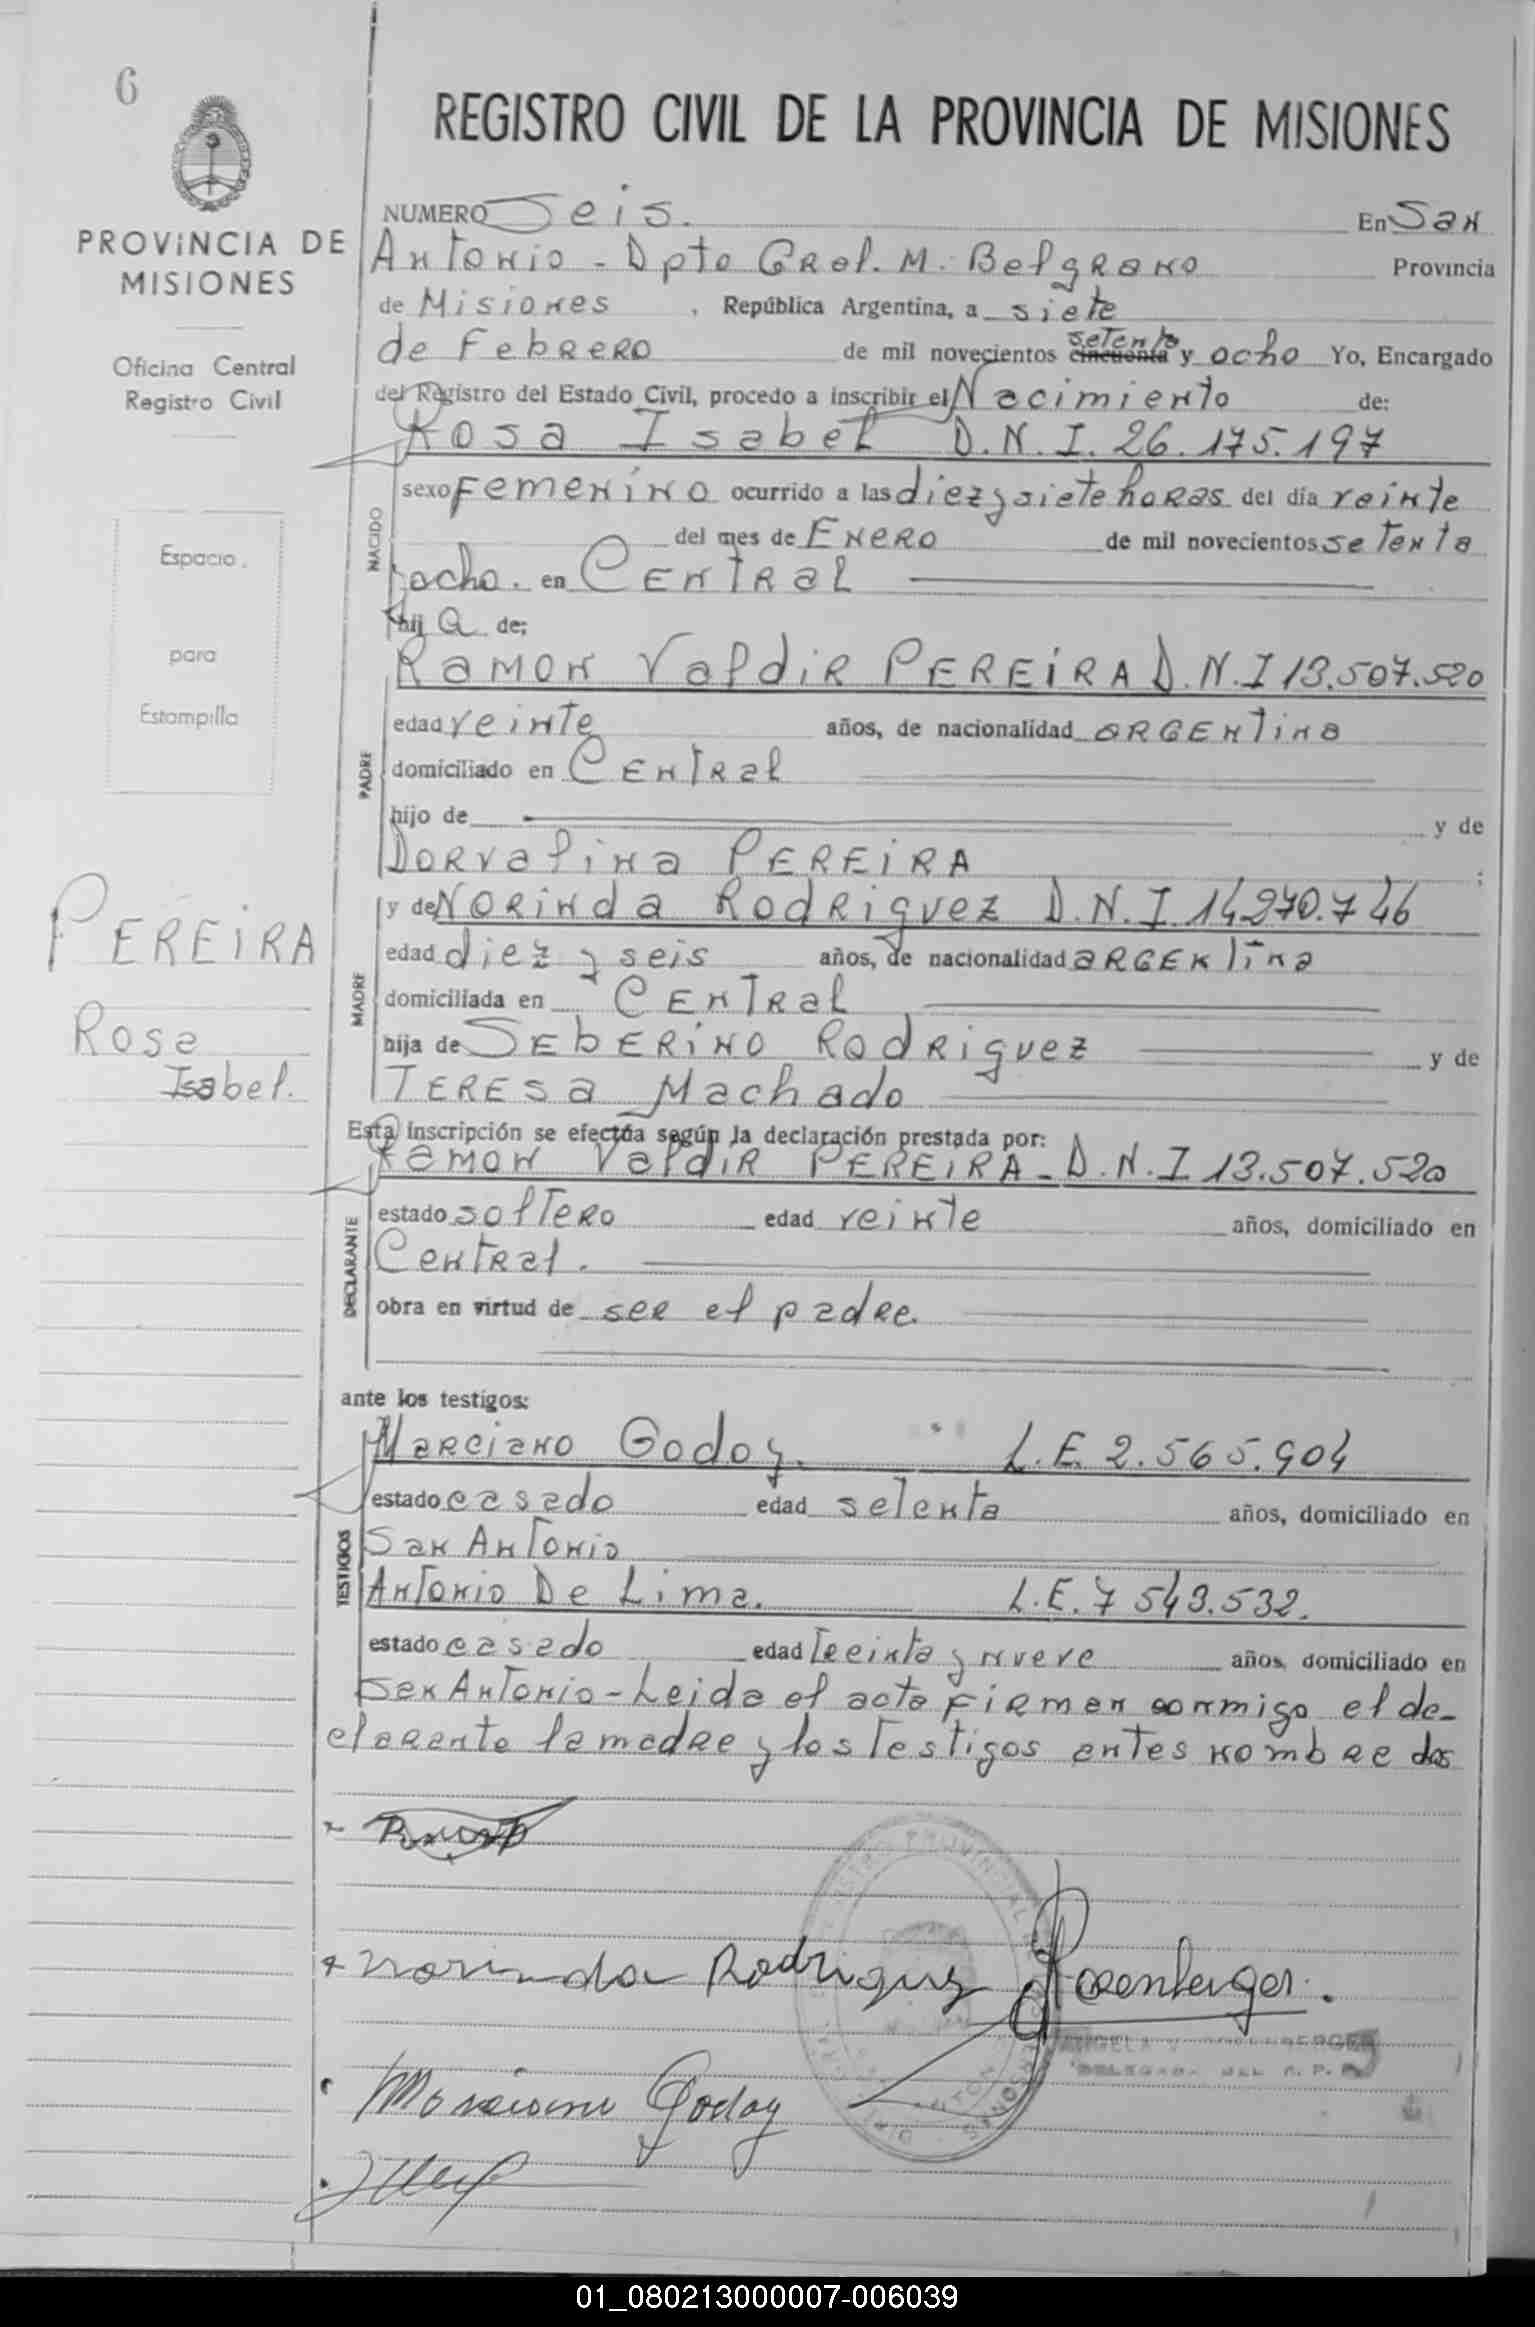 6
REGISTRO CIVIL DE LA PROVINCIA DE MISIONES
PROVINCIA DE
MISIONES
Oficina Central
Registro Civil
Espacio
para
Estampilla
PEREIRA
Rosa
Isabel.
NUMERO Seis. En San
Antonio - Dpto Gral. M. Belgrano Provincia
de Misiones , República Argentina, a siete
de Febrero de mil novecientos cincuenta setenta y ocho Yo, Encargado
del Registro del Estado Civil, procedo a inscribir el Nacimiento de:
Rosa Isabel D.N.I. 26.175.197
NACIDO
sexo Femenino ocurrido a las diez y siete horas del día veinte
del mes de Enero de mil novecientos setenta
y ocho. en Central
hij a de:
Ramon Valdir PEREIRA D.N.I 13.507.520
PADRE
edad veinte años, de nacionalidad argentina
domiciliado en Central
hijo de y de
Dorvalina PEREIRA ;
y de Norinda Rodriguez D.N.I. 14.270.746
MADRE
edad diez y seis años, de nacionalidad argentina
domiciliada en Central
hija de Seberino Rodriguez y de
Teresa Machado
Esta inscripción se efectúa según la declaración prestada por:
Ramon Valdir PEREIRA - D.N.I 13.507.520
DECLARANTE
estado soltero edad veinte años, domiciliado en
Central.
obra en virtud de ser el padre.
ante los testigos:
Marciano Godoy. L.E. 2.565.904
TESTIGOS
estado casado edad setenta años, domiciliado en
San Antonio
Antonio De Lima. L.E. 7 543.532.
estado casado edad treinta y nueve años, domiciliado en
San Antonio - Leida el acta firman conmigo el de-
clarante la madre y los testigos antes nombrados
Norinda Rodriguez Rosenberger.
ANGELA V. ROSENBERGER
DELEGADA DEL R. P. P.
Marciano Godoy
01_080213000007-006039